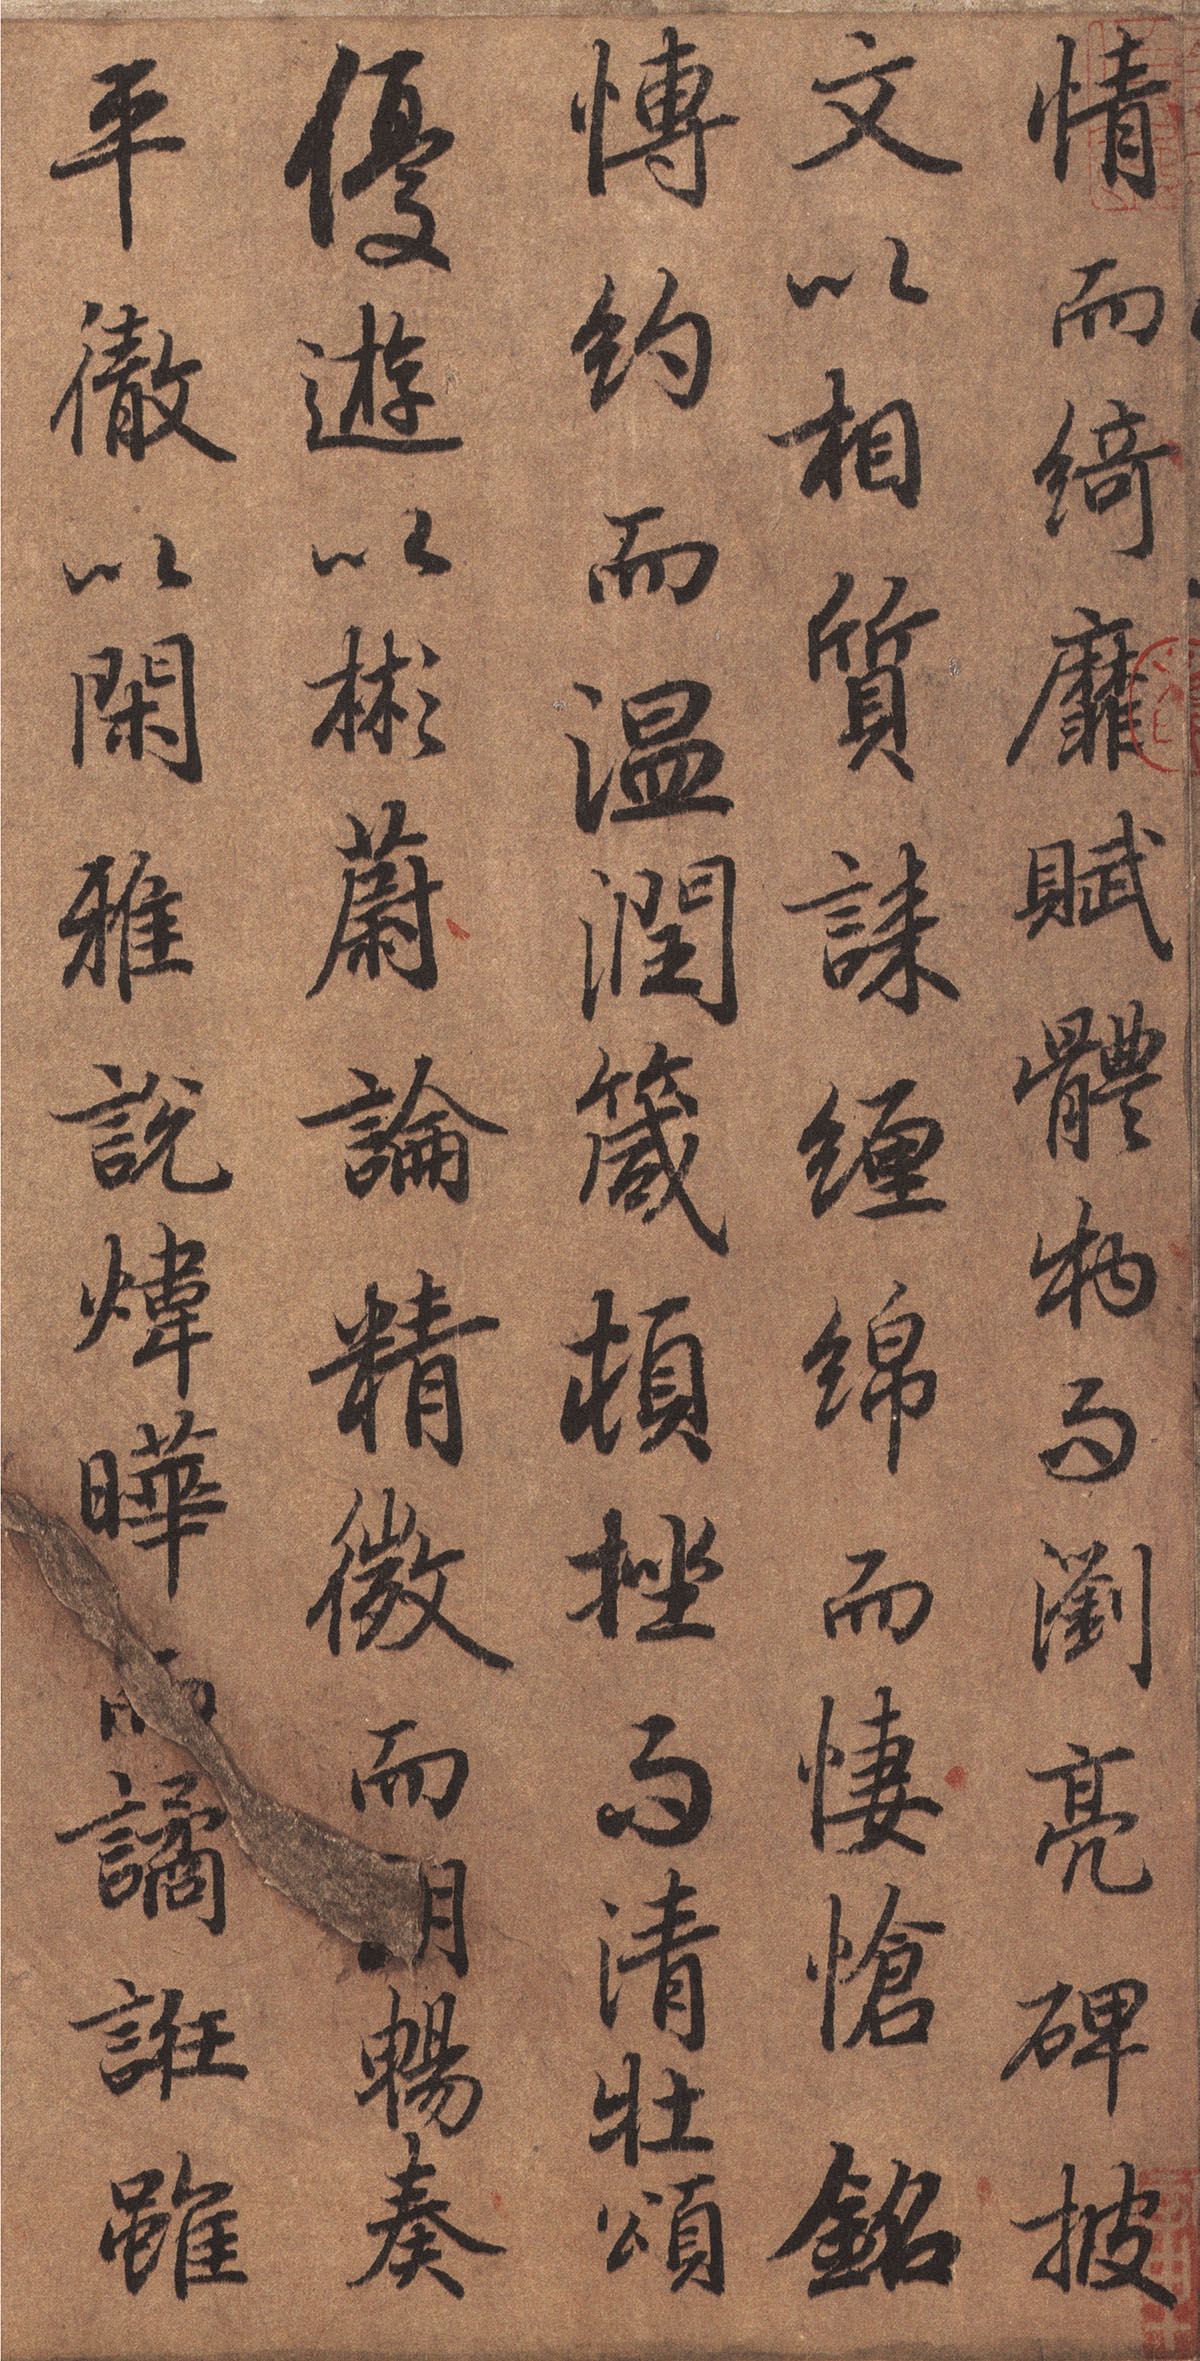 情而綺靡賦體物而瀏亮碑披
文以相質誄纏綿而悽愴銘
慱約而温潤箴頓挫而清壯頌
優遊以彬蔚論精微而朗暢奏
平徹以閑雅說煒曄而譎誑雖